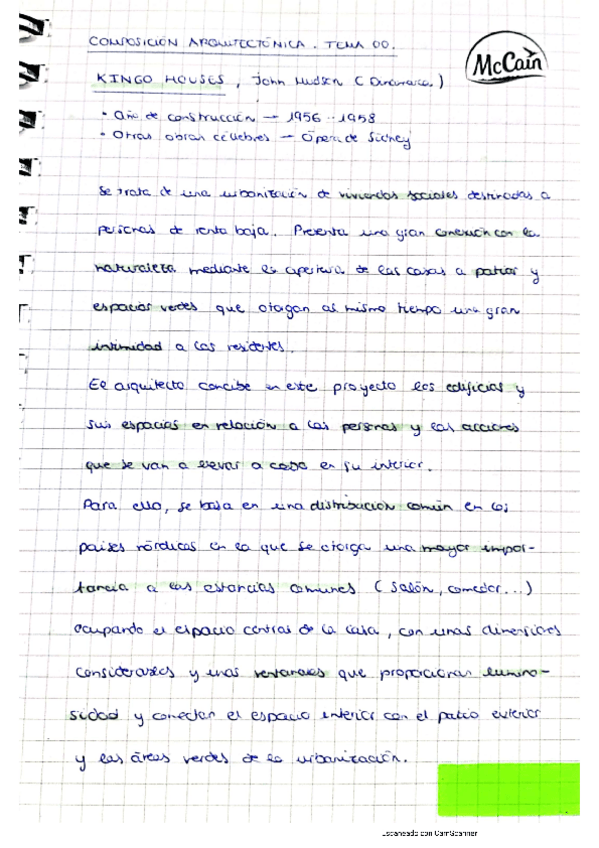 COMPOSICIÓN ARQUITECTÓNICA. TEMA 00.
McCain
KINGO HOUSES, John Hudson (Dinamarca)
• Año de construcción → 1956 - 1958
• Otras obras célebres → Ópera de Sidney
Se trata de una urbanización de viviendas sociales destinadas a
personas de renta baja. Presenta una gran conexión con la
naturaleza mediante la apertura de las casas a patios y
espacios verdes que otorgan al mismo tiempo una gran
intimidad a los residentes.
El arquitecto concibe en este proyecto los edificios y
sus espacios en relación a las personas y las acciones
que se van a llevar a cabo en su interior.
Para ello, se basa en una distribución común en los
países nórdicos en la que se otorga una mayor impor-
tancia a las estancias comunes (salón, comedor...)
ocupando el espacio central de la casa, con unas dimensiones
considerables y unos ventanales que proporcionan lumino-
sidad y conectan el espacio interior con el patio exterior
y las áreas verdes de la urbanización.
Escaneado con CamScanner